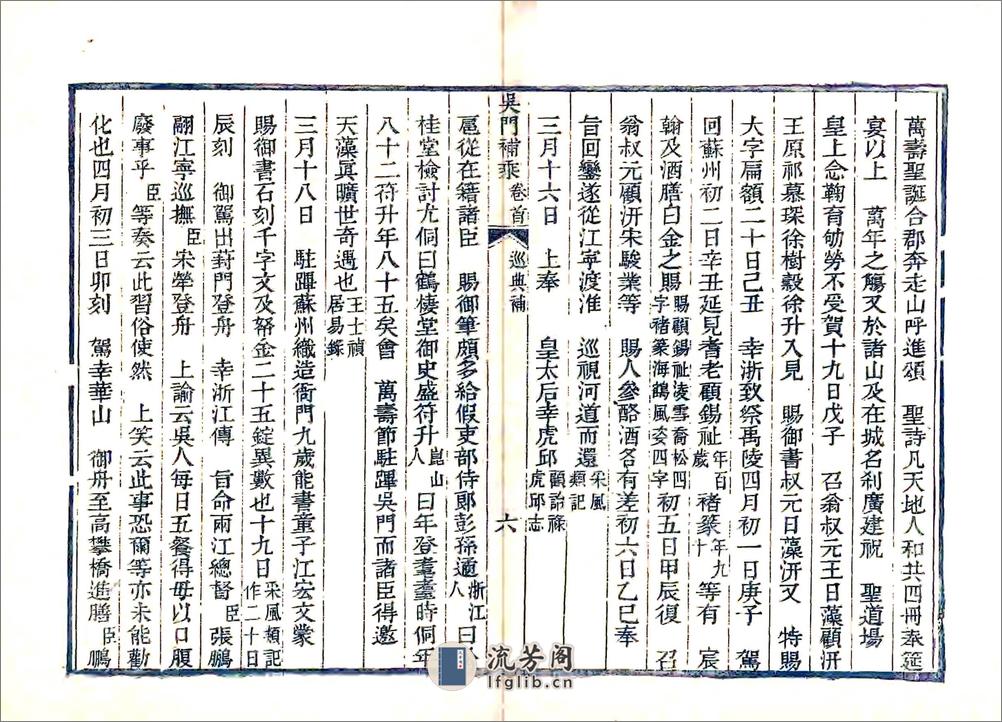 萬壽聖誕合郡奔走山呼進頌　聖詩凡天地人和共四冊奉筵
宴以上　萬年之觴又於諸山及在城名刹廣建祝　聖道場
皇上念鞠育劬勞不受賀十九日戊子　召翁叔元王日藻顧汧
王原祁慕琛徐樹穀徐升入見　賜御書叔元日藻汧又　特賜
大字扁額二十日己丑　幸浙致祭禹陵四月初一日庚子　駕
回蘇州初二日辛丑延見耆老顧錫祉年百歲褚篆年九十等有　宸
翰及酒膳白金之賜賜顧錫祉凌雪喬松四字褚篆海鶴風姿四字初五日甲辰復　召
翁叔元顧汧宋駿業等　賜人參酪酒各有差初六日乙巳奉
旨回鑾遂從江寧渡淮　巡視河道而還采風類記
三月十六日　上奉　皇太后幸虎邱顧詒祿虎邱志
吳門補乘　卷首　巡典補　六
扈從在籍諸臣　賜御筆頗多給假吏部侍郎彭孫遹浙江人曰
桂堂檢討尤侗曰鶴棲堂御史盛符升崑山人曰年登耄耋時侗年
八十二符升年八十五矣會　萬壽節駐蹕吳門而諸臣得邀
天藻眞曠世奇遇也王士禎居易錄
三月十八日　駐蹕蘇州織造衙門九歲能書童子江宏文蒙
賜御書石刻千字文及帑金二十五錠異數也十九日采風類記作二十日
辰刻　御駕出葑門登舟　幸浙江傳　旨命兩江總督臣張鵬
翮江寧巡撫臣宋犖登舟　上諭云吳人每日五餐得毋以口腹
廢事乎臣等奏云此習俗使然　上笑云此事恐爾等亦未能勸
化也四月初三日卯刻　駕幸華山　御舟至高攀橋進膳臣鵬
流芳阁
lfglib.cn